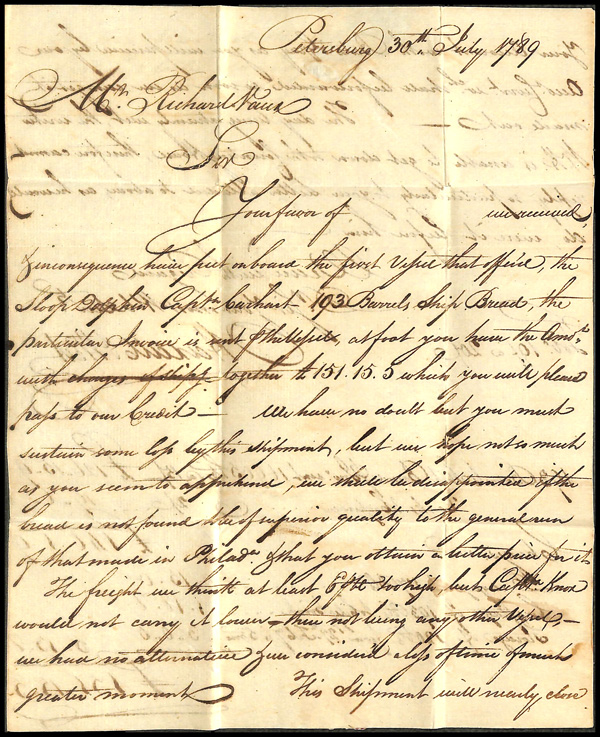 Petersburg 30th July 1789
Mr. Richard Vaux
Sir
Your favor of we received,
& inconsequence have put on board the first Vessel that offer'd, the
Sloop Dolphin Captn. Carhart 103 Barrels Ship Bread, the
particular Invoice is sent at foot you have the Amot.
with charges of shipg. together £151.15.5 which you will please
pass to our Credit — We have no doubt but you must
sustain some loss by this shipment, but we hope not so much
as you seem to apprehend, we shall be disappointed if the
bread is not found to be of superior quality to the general run
of that made in Philada. & that you obtain a better price for it
The freight we think at least too high, but Captn. Knox
would not carry it lower — there not being any other Vessel —
we had no alternative & we consider'd a loss of time of much
greater moment This Shipment will nearly close